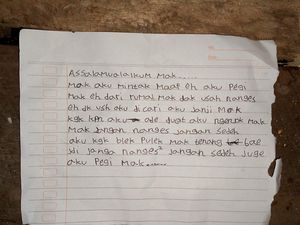 Assalamualaikum Mak.....
Mak aku mintak Maaf eh aku Pegi
Mak eh dari rumah Mak dak usah nanges
eh dk ush aku di cari aku janji Mak
kgk kpn aku ade duet aku ngentuk Mak
Mak Jangan nanges jangan sedeh
aku kgk blek Pulek Mak tenang bae
jdi janga nanges² jangan sedeh juge
aku Pegi Mak......